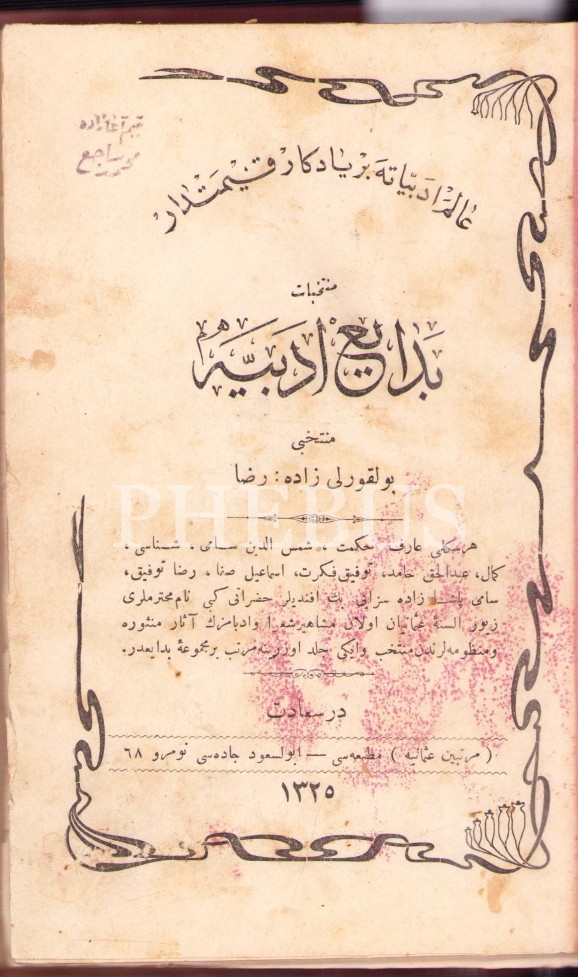 عالم ادبیاته بر یادکار قیمتدار
منتخبات
بدایع ادبیه
منتخبی
بولقورلی زاده : رضا
PHEBUS
هرسکلی عارف حکمت ، شمس الدین سامی ، شناسی ،
کمال ، عبدالحق حامد ، توفیق فکرت ، اسماعیل صفا ، رضا توفیق ،
سامی پاشا زاده سزائی بك افندیلر حضراتی کبی نام محترملری
زیور السنهٔ عثمانیان اولان مشاهیر شعرا وادبامزك آثار منثوره
ومنظومه لرندن منتخب وایکی جلد اوزرینه مرتب بر مجموعهٔ بدایعدر.
در سعادت
( مرتبین عثمانیه ) مطبعه سی — ابوالسعود جاده سی نومرو ٦٨
١٣٢٥